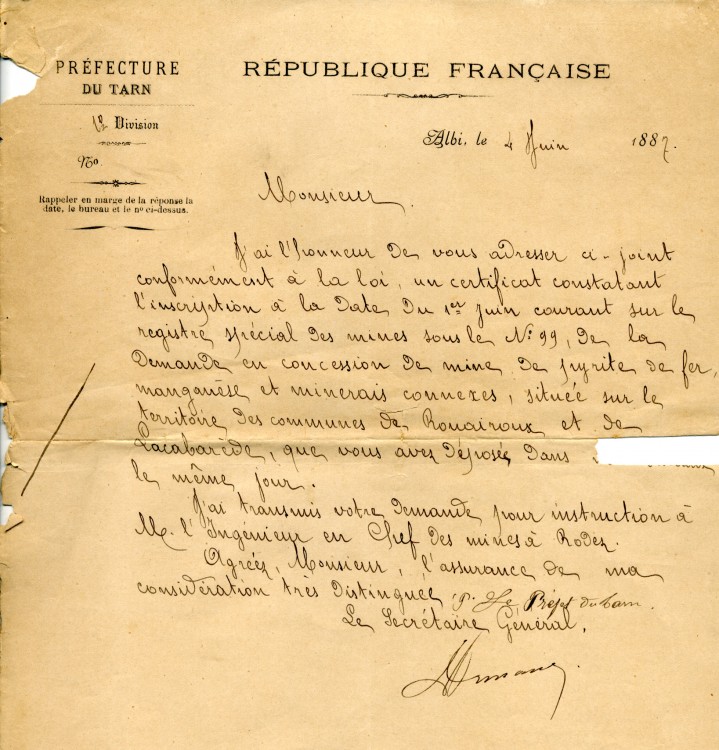 PRÉFECTURE
DU TARN
Division
No
Rappeler en marge de la réponse la
date, le bureau et le no ci-dessus.
RÉPUBLIQUE FRANÇAISE
Albi, le 4 Juin 1887.
Monsieur
J'ai l'honneur de vous adresser ci-joint
conformément à la loi, un certificat constatant
l'inscription à la date du 1er Juin courant sur le
registre spécial des mines sous le No 99, de la
demande en concession de mine de pyrite de fer,
manganèse et minerais connexes, située sur le
territoire des communes de Rouairoux et de
Lacabarède, que vous avez déposée dans
le même jour.
J'ai transmis votre demande pour instruction à
M. l'Ingénieur en Chef des mines à Rodez.
Agréez, Monsieur, l'assurance de ma
considération très distinguée.
P. Le Préfet du Tarn.
Le Secrétaire Général,